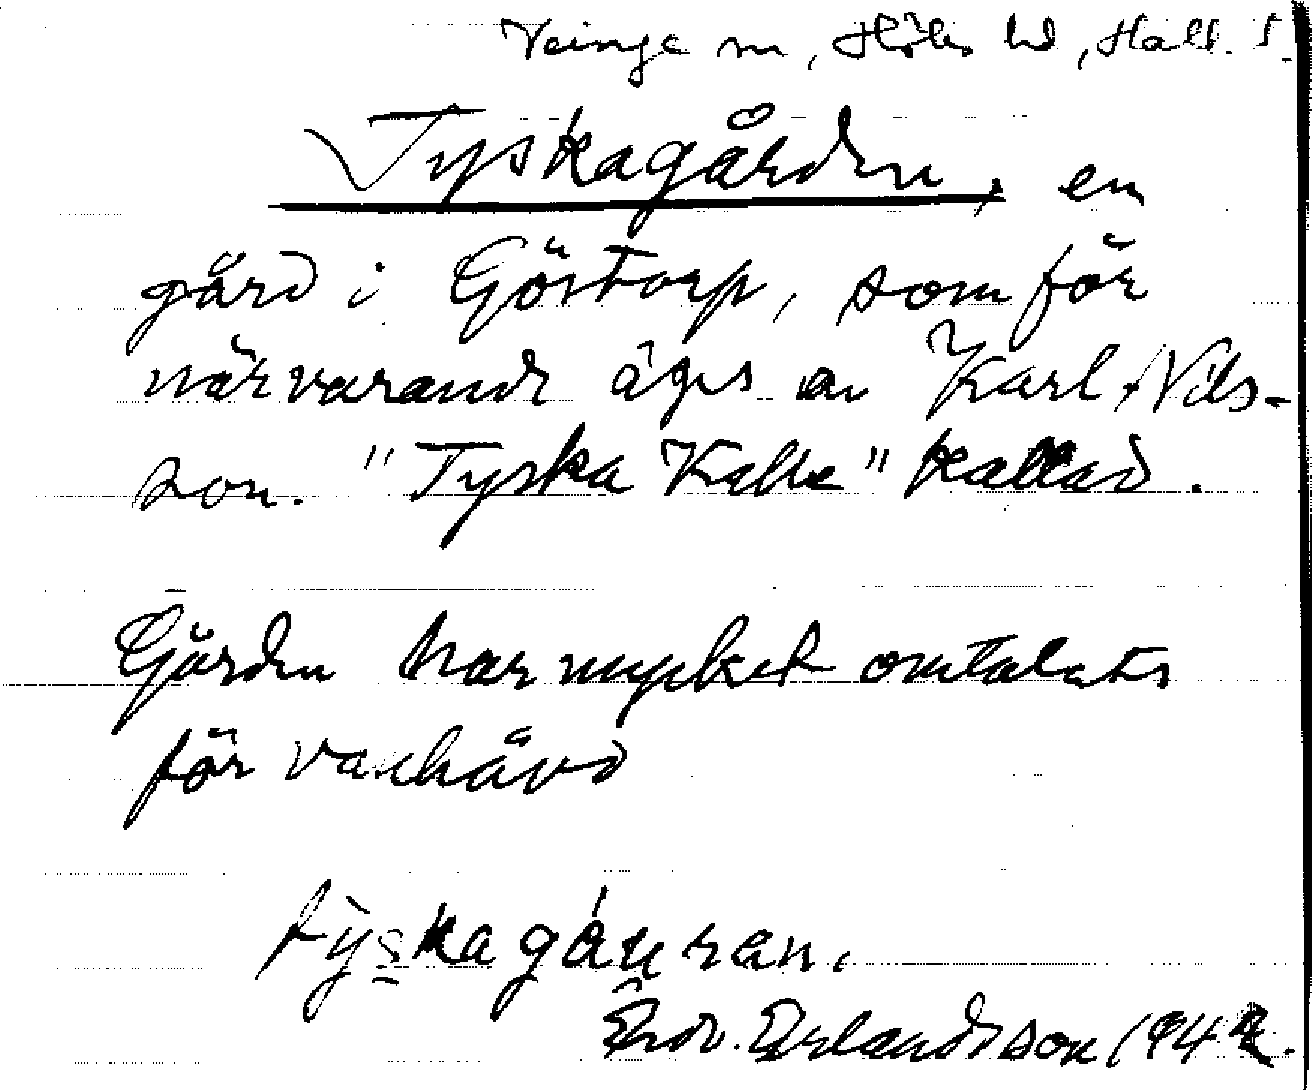 Veinge sn, Höks hd, Hall. l.
Tyskagården, en
gård i Göstorp, som för
närvarande äges av Karl Nils-
son. "Tyska Kalle" kallad.
Gården har mycket omtalats
för vanhävd
Tyskagáuran.
Erlandsson 194